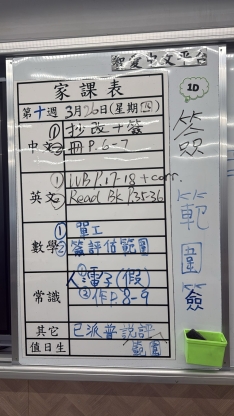 智愛中文平台
家課表
第十週 3月26日(星期四)
中文 ① 抄改+簽
② 冊P.6-7
英文 ① WB P.17-18 + corr.
② Read Bk P.35-36
數學 ① 單工
② 簽評估範圍
常識 ① 電子(假)
② 作P.8-9
其它 已派普說評
範圍
值日生
1D
簽
範
圍